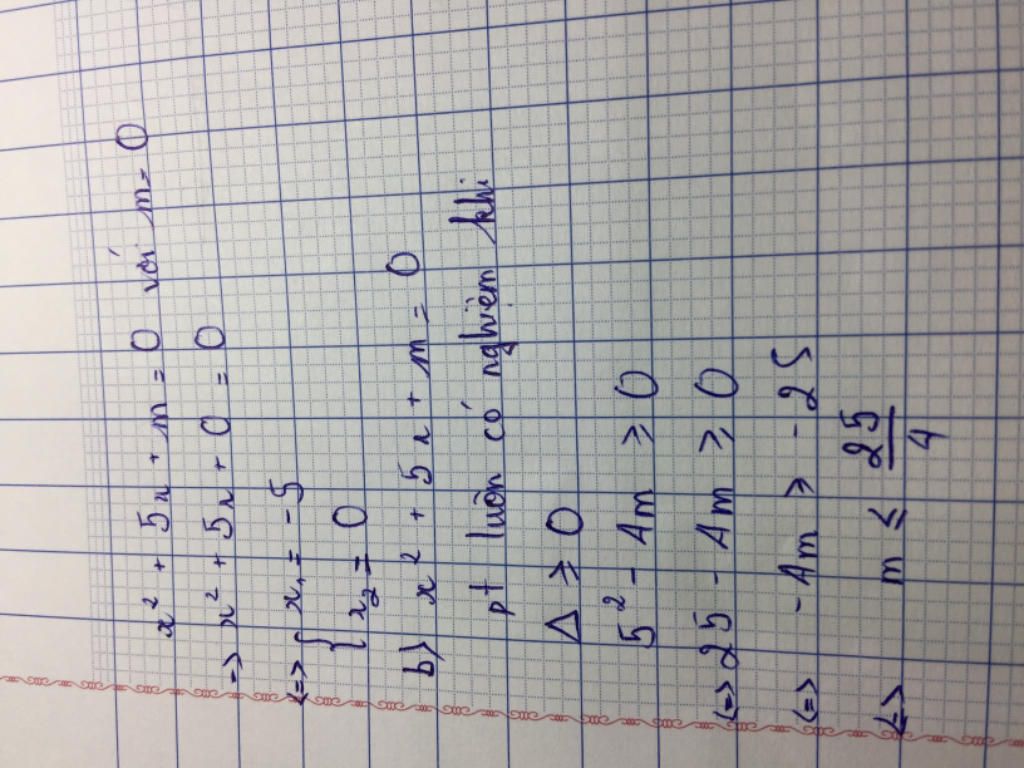 x² + 5x + m = 0 với m = 0
=> x² + 5x + 0 = 0
<=> { x₁ = -5
{ x₂ = 0
b) x² + 5x + m = 0
pt luôn có nghiệm khi
Δ ≥ 0
5² - 4m ≥ 0
<=> 25 - 4m ≥ 0
<=> -4m ≥ -25
<=> m ≤ 25/4